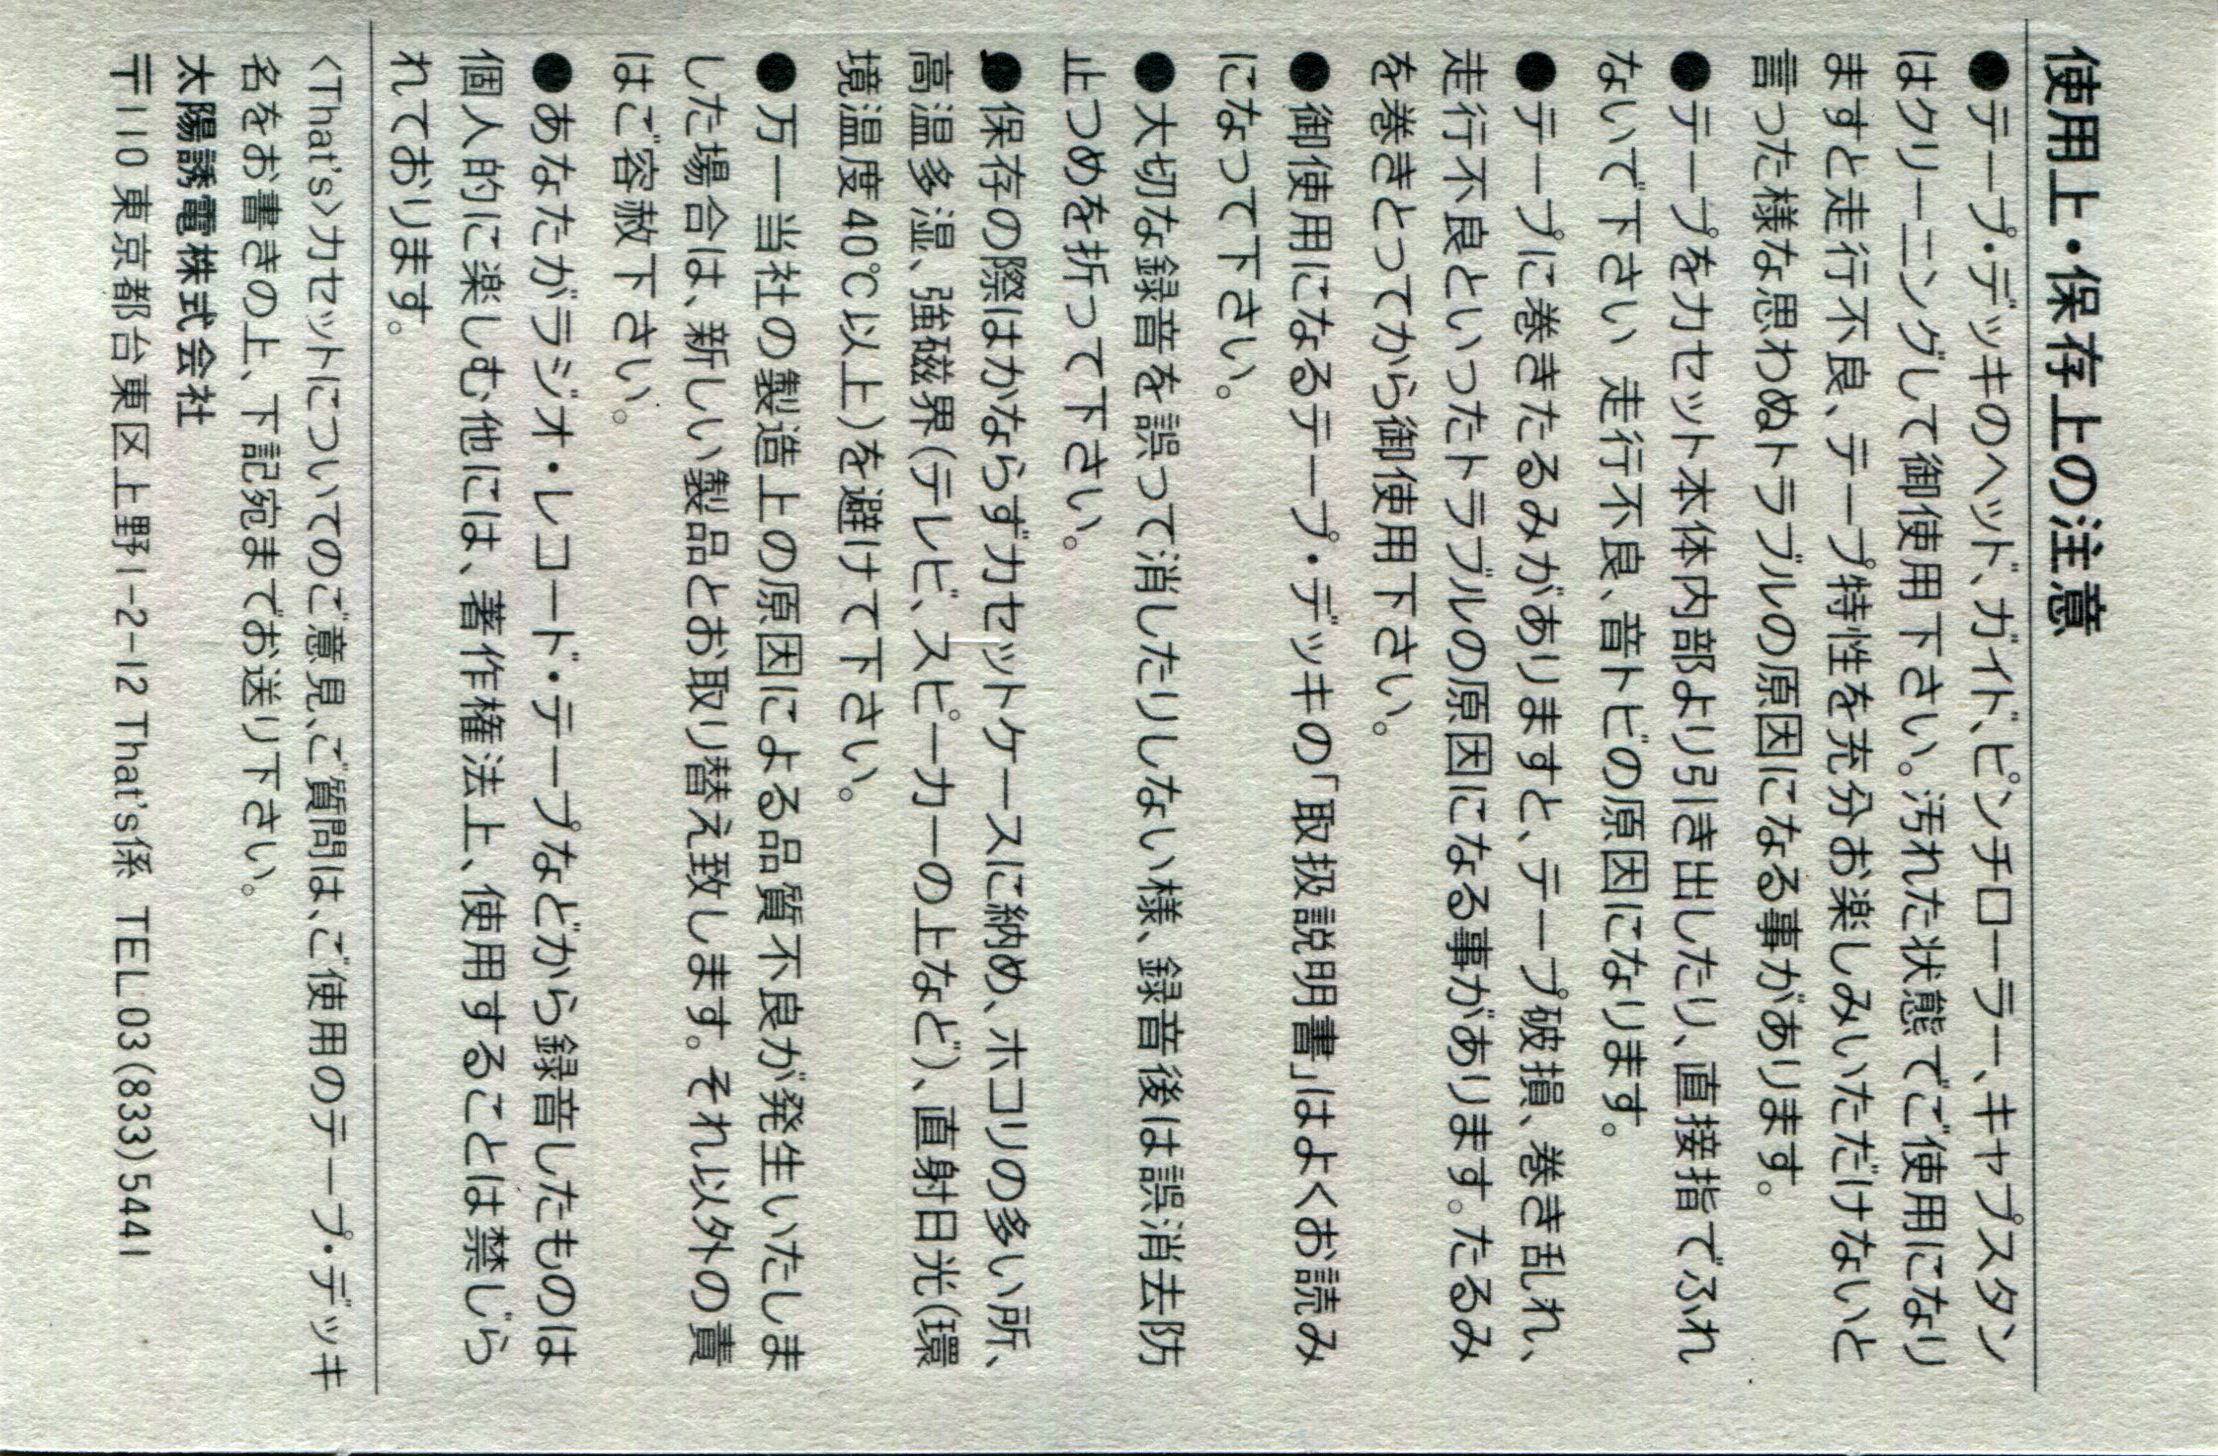 使用上・保存上の注意
●テープ・デッキのヘッド、ガイド、ピンチローラー、キャプスタン
はクリーニングして御使用下さい。汚れた状態でご使用になり
ますと走行不良、テープ特性を充分お楽しみいただけないと
言った様な思わぬトラブルの原因になる事があります。
●テープをカセット本体内部より引き出したり、直接指でふれ
ないで下さい 走行不良、音トビの原因になります。
●テープに巻きたるみがありますと、テープ破損、巻き乱れ、
走行不良といったトラブルの原因になる事があります。たるみ
を巻きとってから御使用下さい。
●御使用になるテープ・デッキの「取扱説明書」はよくお読み
になって下さい。
●大切な録音を誤って消したりしない様、録音後は誤消去防
止つめを折って下さい。
●保存の際はかならずカセットケースに納め、ホコリの多い所、
高温多湿、強磁界(テレビ、スピーカーの上など)、直射日光(環
境温度40℃以上)を避けて下さい。
●万一当社の製造上の原因による品質不良が発生いたしま
した場合は、新しい製品とお取り替え致します。それ以外の責
はご容赦下さい。
●あなたがラジオ・レコード・テープなどから録音したものは
個人的に楽しむ他には、著作権法上、使用することは禁じら
れております。
〈That's〉カセットについてのご意見、ご質問は、ご使用のテープ・デッキ
名をお書きの上、下記宛までお送り下さい。
太陽誘電株式会社
〒110 東京都台東区上野1-2-12 That's係 TEL 03(833)5441